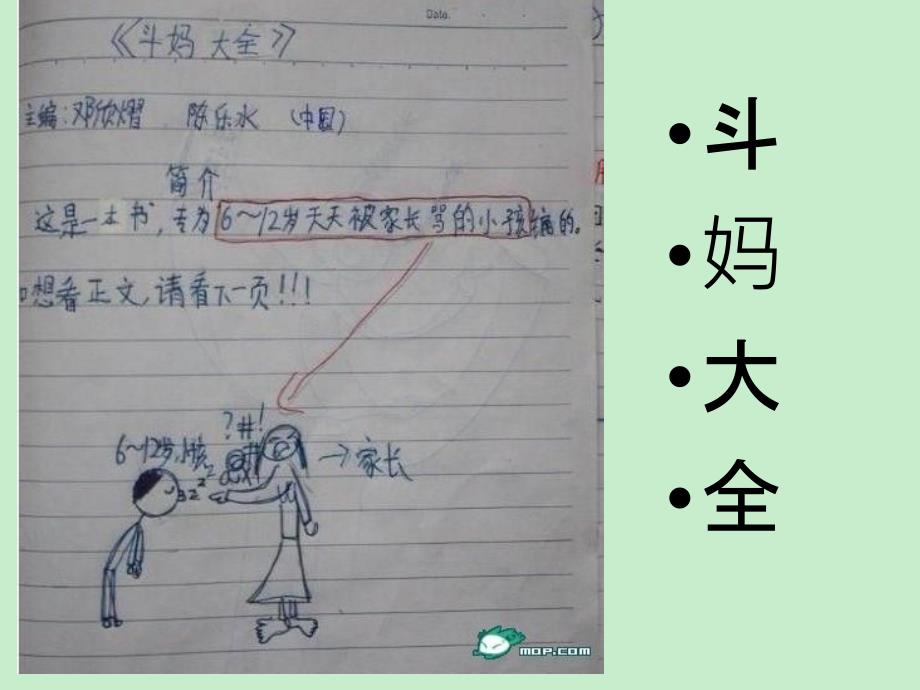 Date.
《斗妈 大全》
主编:邓欣熠 陈乐水 (中国)
简介
这是一本书,专为6~12岁天天被家长骂的小孩编的。
想看正文,请看下一页!!!
?#!
6~12岁小孩
zzz
→家长
mop.com
•斗
•妈
•大
•全